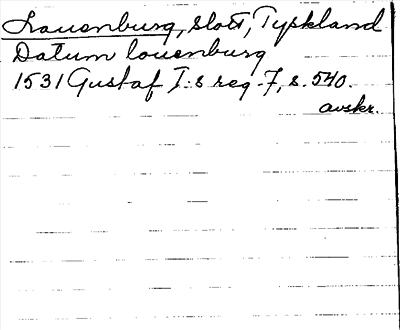 Lauenburg, slott, Tyskland
Datum louenburg
1531 Gustaf I:s reg. 7, s. 540.
avskr.